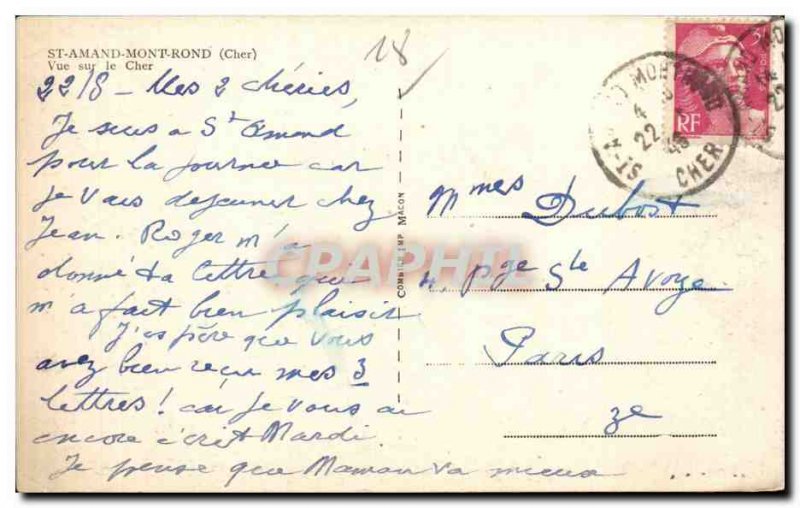 ST-AMAND-MONT-ROND (Cher)
Vue sur le Cher
18
22/8 - Mes 2 chéries,
Je suis a St Amand
pour la journée car
je vais dejeuner chez
Jean. Roger m'a
donné ta lettre qui
m'a fait bien plaisir
J'espère que vous
avez bien reçu mes 3
lettres! car je vous ai
encore écrit Mardi.
Je pense que Maman va mieux .....
COMBIER IMP MACON
Mmes Dubost
4, pge Ste Avoye
Paris
3e
RF
ST-AMAND MONTROND
22
CHER
CPAPHIL